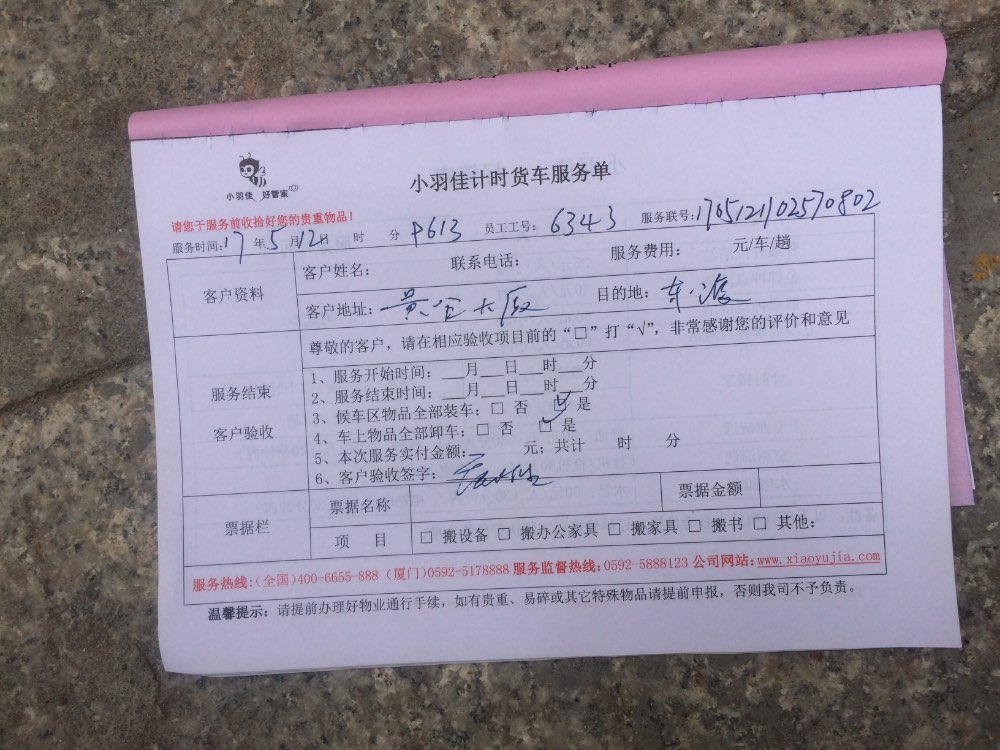 小羽佳 好管家
小羽佳计时货车服务单
请您于服务前收拾好您的贵重物品!
服务时间:17年5月12日 时 分 P613 员工工号: 6343 服务联号:1705121102570802
客户资料
客户姓名: 联系电话: 服务费用: 元/车/趟
客户地址: 黄金大厦 目的地: 东渡
服务结束
客户验收
尊敬的客户，请在相应验收项目前的“□”打“√”，非常感谢您的评价和意见
1、服务开始时间: ___月___日___时___分
2、服务结束时间: ___月___日___时___分
3、候车区物品全部装车: □ 否 □ 是
4、车上物品全部卸车: □ 否 □ 是
5、本次服务实付金额: 元; 共计 时 分
6、客户验收签字:
票据栏
票据名称 票据金额
项 目 □ 搬设备 □ 搬办公家具 □ 搬家具 □ 搬书 □ 其他:
服务热线:(全国)400-6655-888 (厦门)0592-5178888 服务监督热线:0592-5888123 公司网站:www.xiaoyujia.com
温馨提示: 请提前办理好物业通行手续，如有贵重、易碎或其它特殊物品请提前申报，否则我司不予负责。